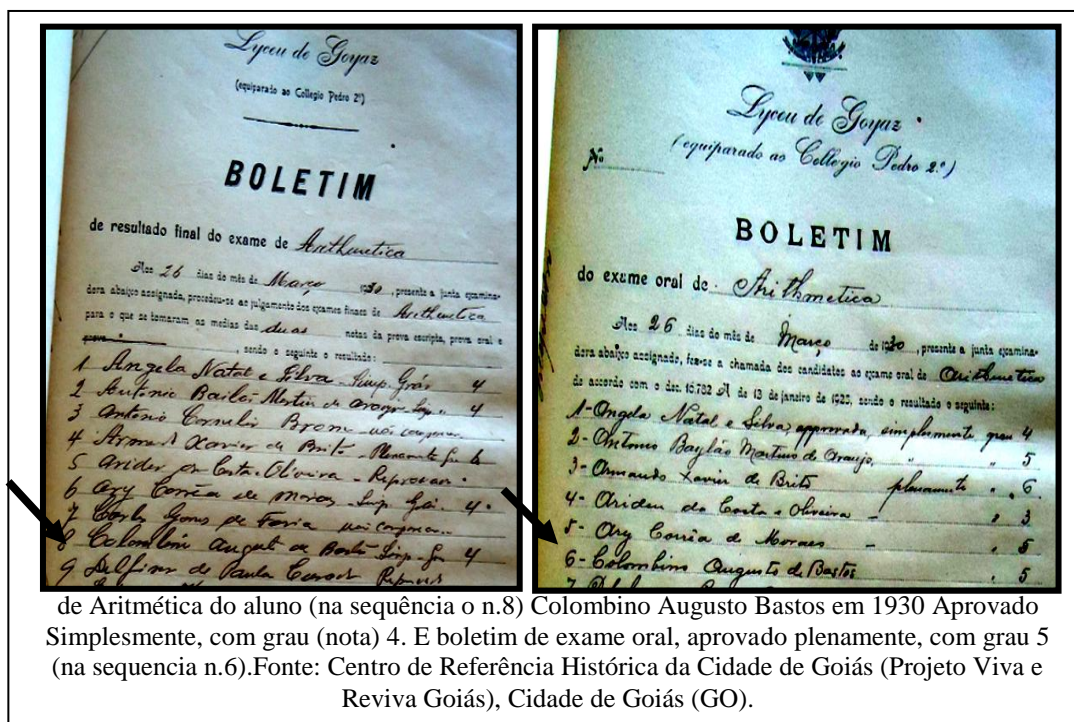 Lyceu de Goyaz
(equiparado ao Collegio Pedro 2º)
BOLETIM
de resultado final do exame de Arithmetica
Aos 26 dias do mês de Março 1930, presente a junta examina-
dora abaixo assignada, procedeu-se ao julgamento dos exames finaes de Arithmetica
para o que se tomaram as medias das duas notas da prova escripta, prova oral e
, sendo o seguinte o resultado:
1 Angela Natal e Silva Simp. Gráo 4
2 Antonio Bailão Martins de Araujo Simp. " 4
3 Antonio Cornelio Brom não compareceu
4 Armando Xavier de Brito - Plenamente 6
5 Arides da Costa Oliveira - Reprovado
6 Ary Corrêa de Moraes Simp. Gráo 4
7 Carlos Gomes de Faria não compareceu
8 Colombino Augusto de Bastos Simp. 4
9 Delfino de Paula
Lyceu de Goyaz
(equiparado ao Collegio Pedro 2.º)
Nº
BOLETIM
do exame oral de Arithmetica
Aos 26 dias do mês de Março de 1930, presente a junta examina-
dora abaixo assignada, fez-se a chamada dos candidatos ao exame oral de Arithmetica
de accordo com o dec. 16.782 A de 13 de janeiro de 1925, sendo o resultado o seguinte:
1 - Angela Natal e Silva, approvada, simplesmente grau 4
2 - Antonio Baylão Martins de Araujo, " " 5
3 - Armando Xavier de Brito plenamente " 6
4 - Arides da Costa e Oliveira - " 3
5 - Ary Corrêa de Moraes - " 5
6 - Colombino Augusto de Bastos " 5
de Aritmética do aluno (na sequência o n.8) Colombino Augusto Bastos em 1930 Aprovado
Simplesmente, com grau (nota) 4. E boletim de exame oral, aprovado plenamente, com grau 5
(na sequencia n.6).Fonte: Centro de Referência Histórica da Cidade de Goiás (Projeto Viva e
Reviva Goiás), Cidade de Goiás (GO).